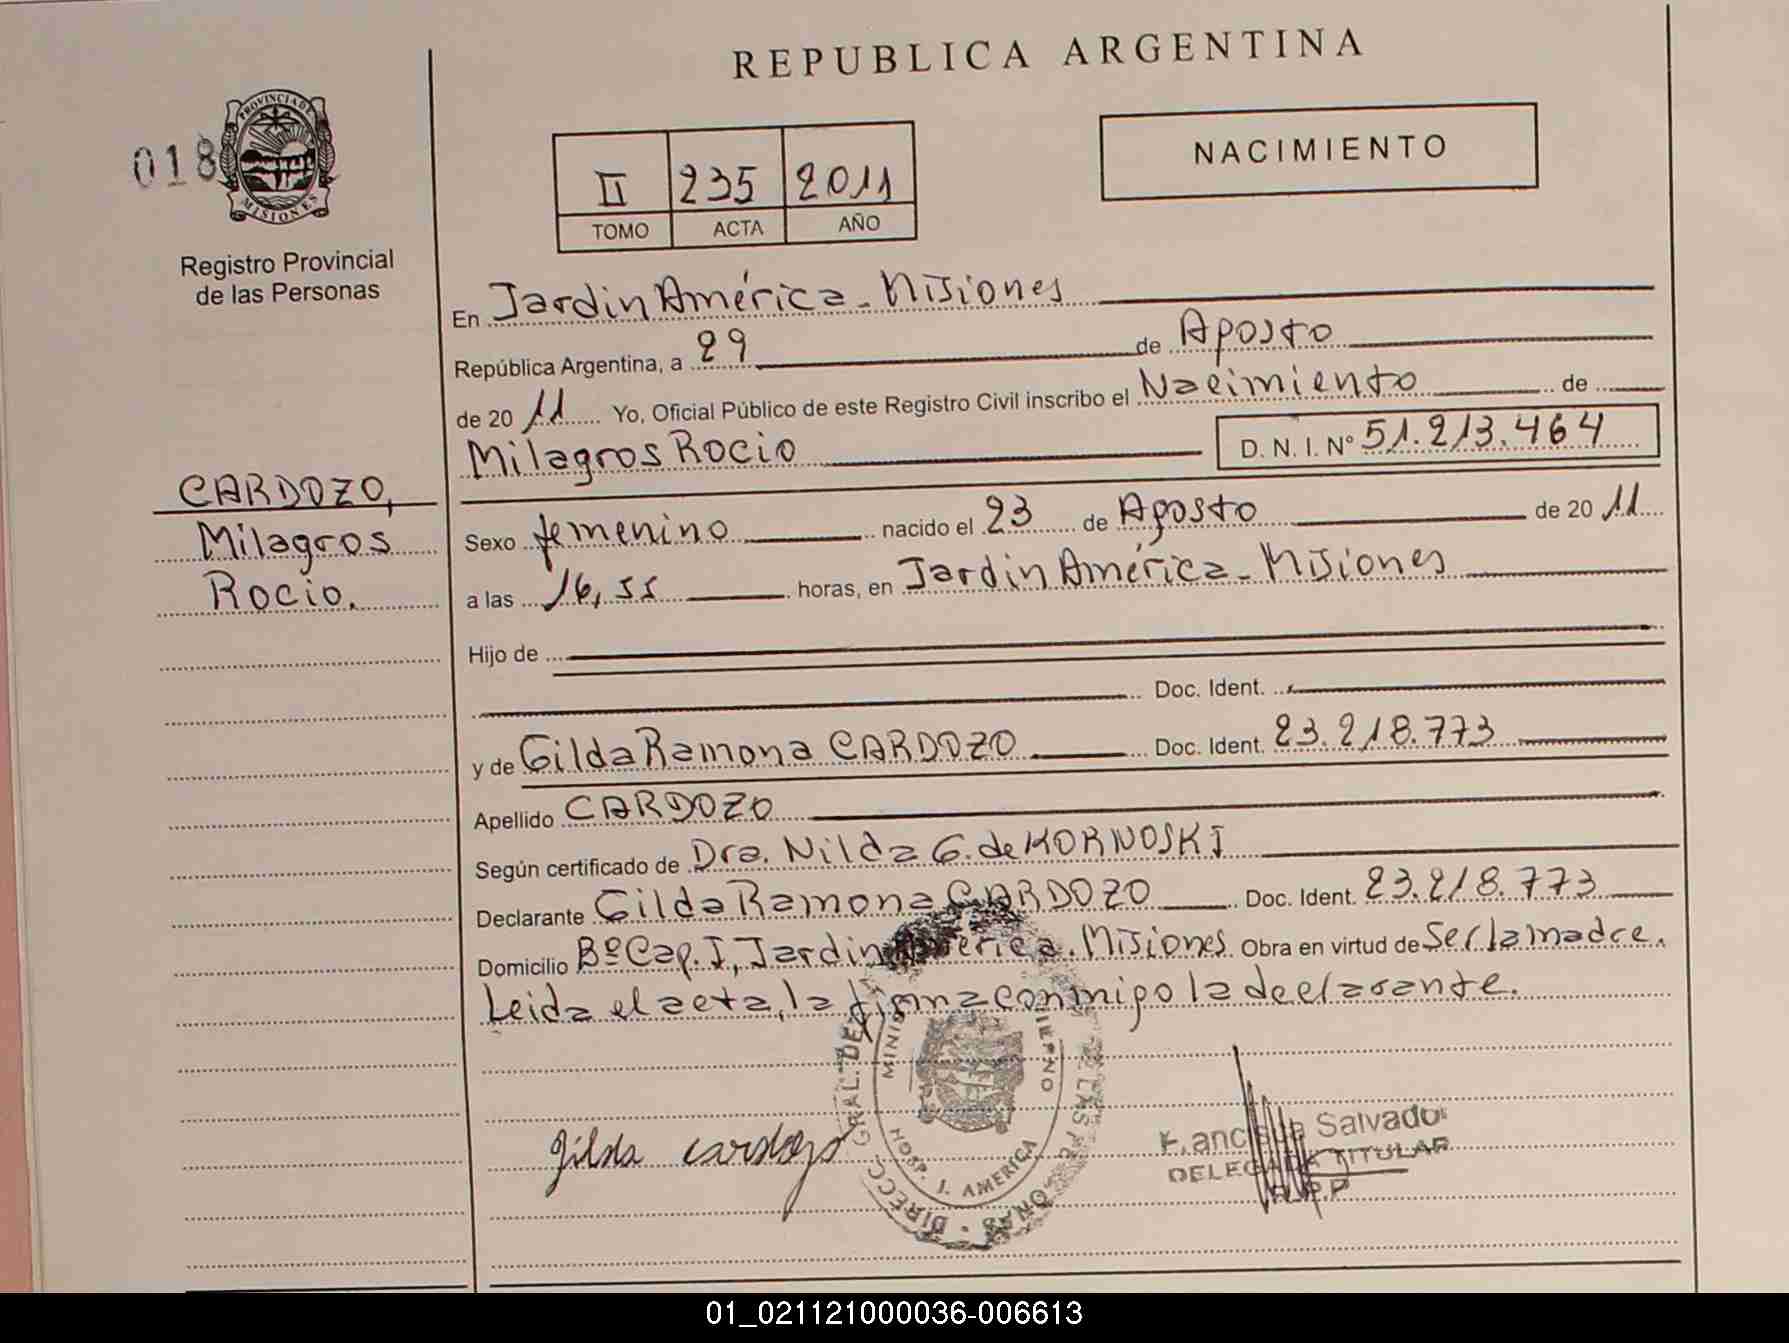 REPUBLICA ARGENTINA
018
PROVINCIA DE
MISIONES
Registro Provincial
de las Personas
II 235 2011
TOMO ACTA AÑO
NACIMIENTO
En Jardin América - Misiones
República Argentina, a 29 de Agosto
de 20 11 Yo, Oficial Público de este Registro Civil inscribo el Nacimiento de
Milagros Rocio D. N. I. Nº 51.213.464
CARDOZO,
Milagros
Rocio.
Sexo femenino nacido el 23 de Agosto de 20 11
a las 16,55 horas, en Jardin América - Misiones
Hijo de
Doc. Ident.
y de Gilda Ramona CARDOZO Doc. Ident. 23.218.773
Apellido CARDOZO
Según certificado de Dra. Nilda G. de KORNOSKI
Declarante Gilda Ramona CARDOZO Doc. Ident. 23.218.773
Domicilio Bº Cap. I, Jardin América. Misiones Obra en virtud de Ser la madre.
Leida el acta, la firma conmigo la declarante.
DIRECC. GRAL. DE LAS
HOSP. J. AMERICA
Gilda Cardozo
Salvador
DELEGADA TITULAR
R.P.P
01_021121000036-006613